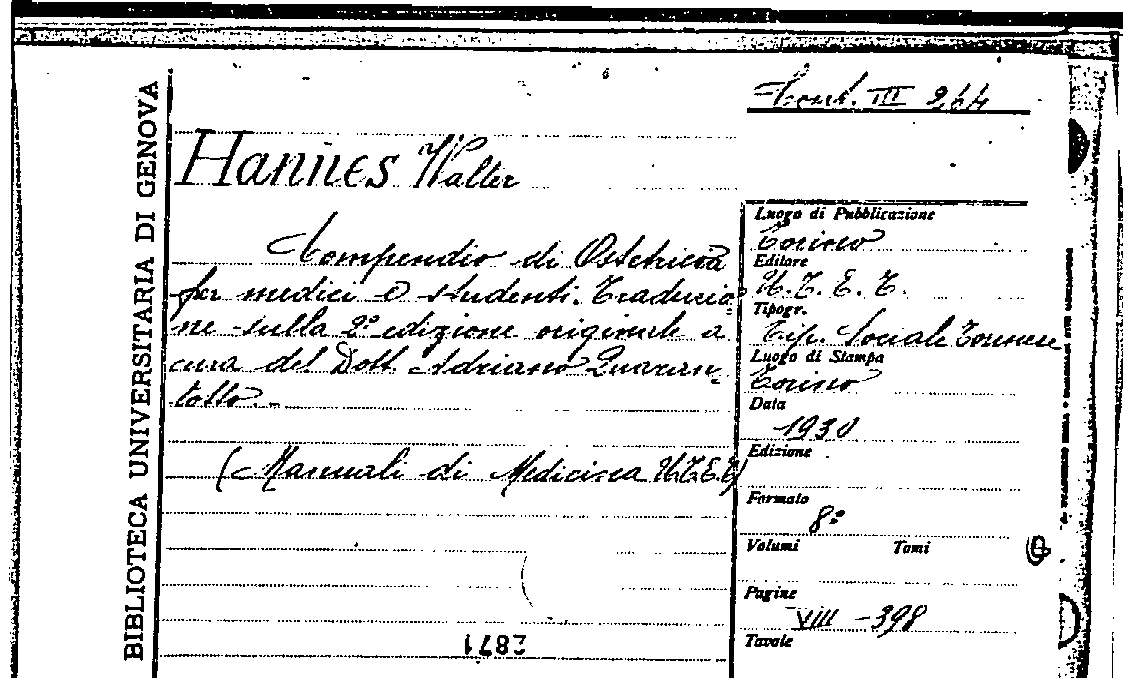 BIBLIOTECA UNIVERSITARIA DI GENOVA
III 264
Hannes Walter
Compendio di Ostetricia
per medici e studenti. Traduzio=
ne sulla 2ª edizione originale a
cura del Dott. Adriano Quaran=
totto.-
(Manuali di Medicina U.T.E.T)
2871
Luogo di Pubblicazione
Torino
Editore
U.T.E.T.
Tipogr.
Tip. Sociale Torinese
Luogo di Stampa
Torino
Data
1930
Edizione
Formato
8º
Volumi Tomi
Pagine
VIII-398
Tavole